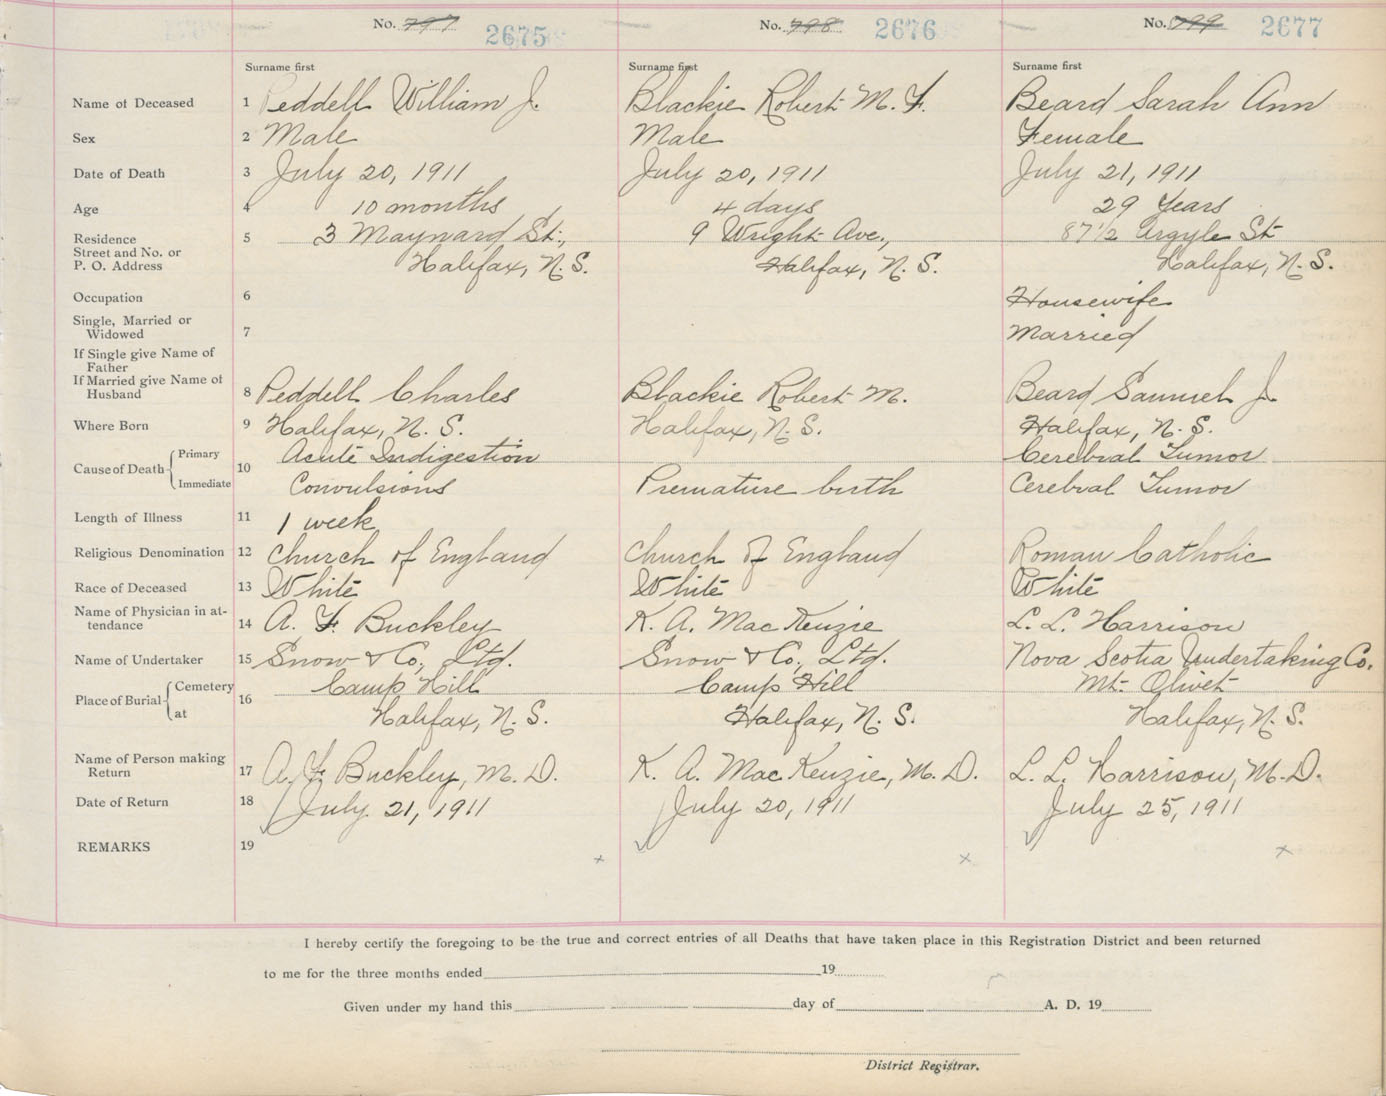 No. 797 2675 No. 798 2676 No. 799 2677
Surname first Surname first Surname first
Name of Deceased 1 Peddell William J. Blackie Robert M. F. Beard Sarah Ann
Sex 2 Male Male Female
Date of Death 3 July 20, 1911 July 20, 1911 July 21, 1911
Age 4 10 months 4 days 29 Years
Residence 5 3 Maynard St., 9 Wright Ave., 87½ Argyle St
Street and No. or
P. O. Address Halifax, N. S. Halifax, N. S. Halifax, N. S.
Occupation 6 Housewife
Single, Married or
Widowed 7 Married
If Single give Name of
Father
If Married give Name of
Husband 8 Peddell Charles Blackie Robert M. Beard Samuel J.
Where Born 9 Halifax, N. S. Halifax, N. S. Halifax, N. S.
Cause of Death 10 Primary Acute Indigestion Cerebral Tumor
Immediate Convulsions Premature birth Cerebral Tumor
Length of Illness 11 1 week
Religious Denomination 12 Church of England Church of England Roman Catholic
Race of Deceased 13 White White White
Name of Physician in at-
tendance 14 A. F. Buckley K. A. MacKenzie L. L. Harrison
Name of Undertaker 15 Snow & Co., Ltd. Snow & Co., Ltd. Nova Scotia Undertaking Co.
Place of Burial 16 Cemetery Camp Hill Camp Hill Mt. Olivet
at Halifax, N. S. Halifax, N. S. Halifax, N. S.
Name of Person making
Return 17 A. F. Buckley, M. D. K. A. MacKenzie, M. D. L. L. Harrison, M. D.
Date of Return 18 July 21, 1911 July 20, 1911 July 25, 1911
REMARKS 19
x x x
I hereby certify the foregoing to be the true and correct entries of all Deaths that have taken place in this Registration District and been returned
to me for the three months ended 19
Given under my hand this day of A. D. 19
District Registrar.